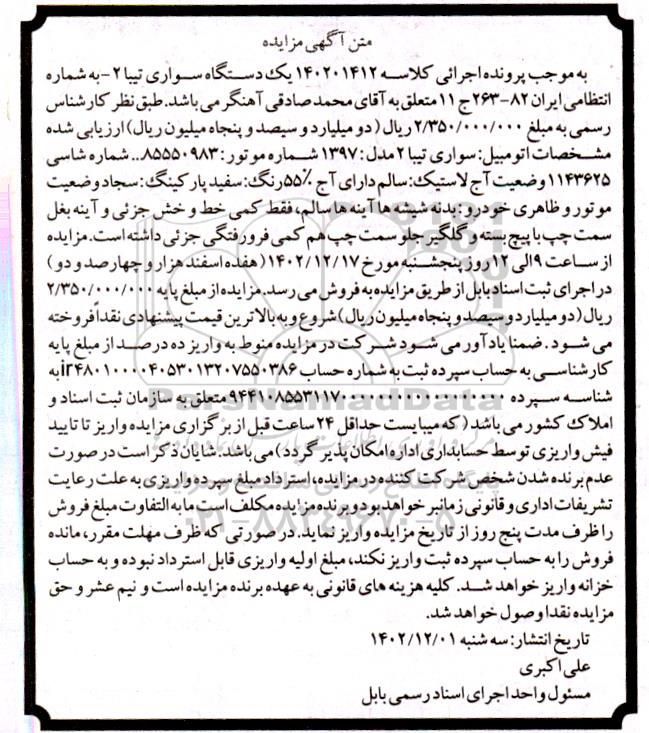 متن آگهی مزایده
به موجب پرونده اجرائی کلاسه ۱۴۰۲۰۱۴۱۲ یک دستگاه سواری تیبا ۲-به شماره
انتظامی ایران ۸۲-۲۶۳ج۱۱ متعلق به آقای محمد صادقی آهنگر می باشد. طبق نظر کارشناس
رسمی به مبلغ ۲/۳۵۰/۰۰۰/۰۰۰ ریال (دو میلیارد و سیصد و پنجاه میلیون ریال) ارزیابی شده
مشخصات اتومبیل: سواری تیبا ۲ مدل: ۱۳۹۷ شماره موتور: ۸۵۵۵۰۹۸۳.. شماره شاسی
۱۱۴۳۶۲۵ وضعیت آج لاستیک: سالم دارای آج ۵۵٪ رنگ: سفید پارکینگ: سجاد وضعیت
موتور و ظاهری خودرو: بدنه شیشه ها آینه ها سالم، فقط کمی خط و خش جزئی و آینه بغل
سمت چپ با پیچ بسته و گلگیر جلو سمت چپ هم کمی فرورفتگی جزئی داشته است. مزایده
از ساعت ۹ الی ۱۲ روز پنجشنبه مورخ ۱۴۰۲/۱۲/۱۷ (هفده اسفند هزار و چهارصد و دو)
در اجرای ثبت اسناد بابل از طریق مزایده به فروش می رسد. مزایده از مبلغ پایه ۲/۳۵۰/۰۰۰/۰۰۰
ریال (دو میلیارد و سیصد و پنجاه میلیون ریال) شروع و به بالاترین قیمت پیشنهادی نقداً فروخته
می شود. ضمنا یادآور می شود شرکت در مزایده منوط به واریز ده درصد از مبلغ پایه
کارشناسی به حساب سپرده ثبت به شماره حساب ir۴۸۰۱۰۰۰۰۴۰۵۳۰۱۳۲۰۷۵۵۰۳۸۶ به
شناسه سپرده ۹۴۴۱۰۸۵۵۳۱۱۷۰۰۰۰۰۰۰۰۰۰۰۰۰۰۰۰۰۰ متعلق به سازمان ثبت اسناد و
املاک کشور می باشد (که میبایست حداقل ۲۴ ساعت قبل از برگزاری مزایده واریز تا تایید
فیش واریزی توسط حسابداری اداره امکان پذیر گردد) می باشد. شایان ذکر است در صورت
عدم برنده شدن شخص شرکت کننده در مزایده، استرداد مبلغ سپرده واریزی به علت رعایت
تشریفات اداری و قانونی زمانبر خواهد بود و برنده مزایده مکلف است مابه التفاوت مبلغ فروش
را ظرف مدت پنج روز از تاریخ مزایده واریز نماید. در صورتی که ظرف مهلت مقرر، مانده
فروش را به حساب سپرده ثبت واریز نکند، مبلغ اولیه واریزی قابل استرداد نبوده و به حساب
خزانه واریز خواهد شد. کلیه هزینه های قانونی به عهده برنده مزایده است و نیم عشر و حق
مزایده نقدا وصول خواهد شد.
تاریخ انتشار: سه شنبه ۱۴۰۲/۱۲/۰۱
علی اکبری
مسئول واحد اجرای اسناد رسمی بابل
ParsNamadData
۰۲۱-۸۸۳۴۹۶۷۰-۵